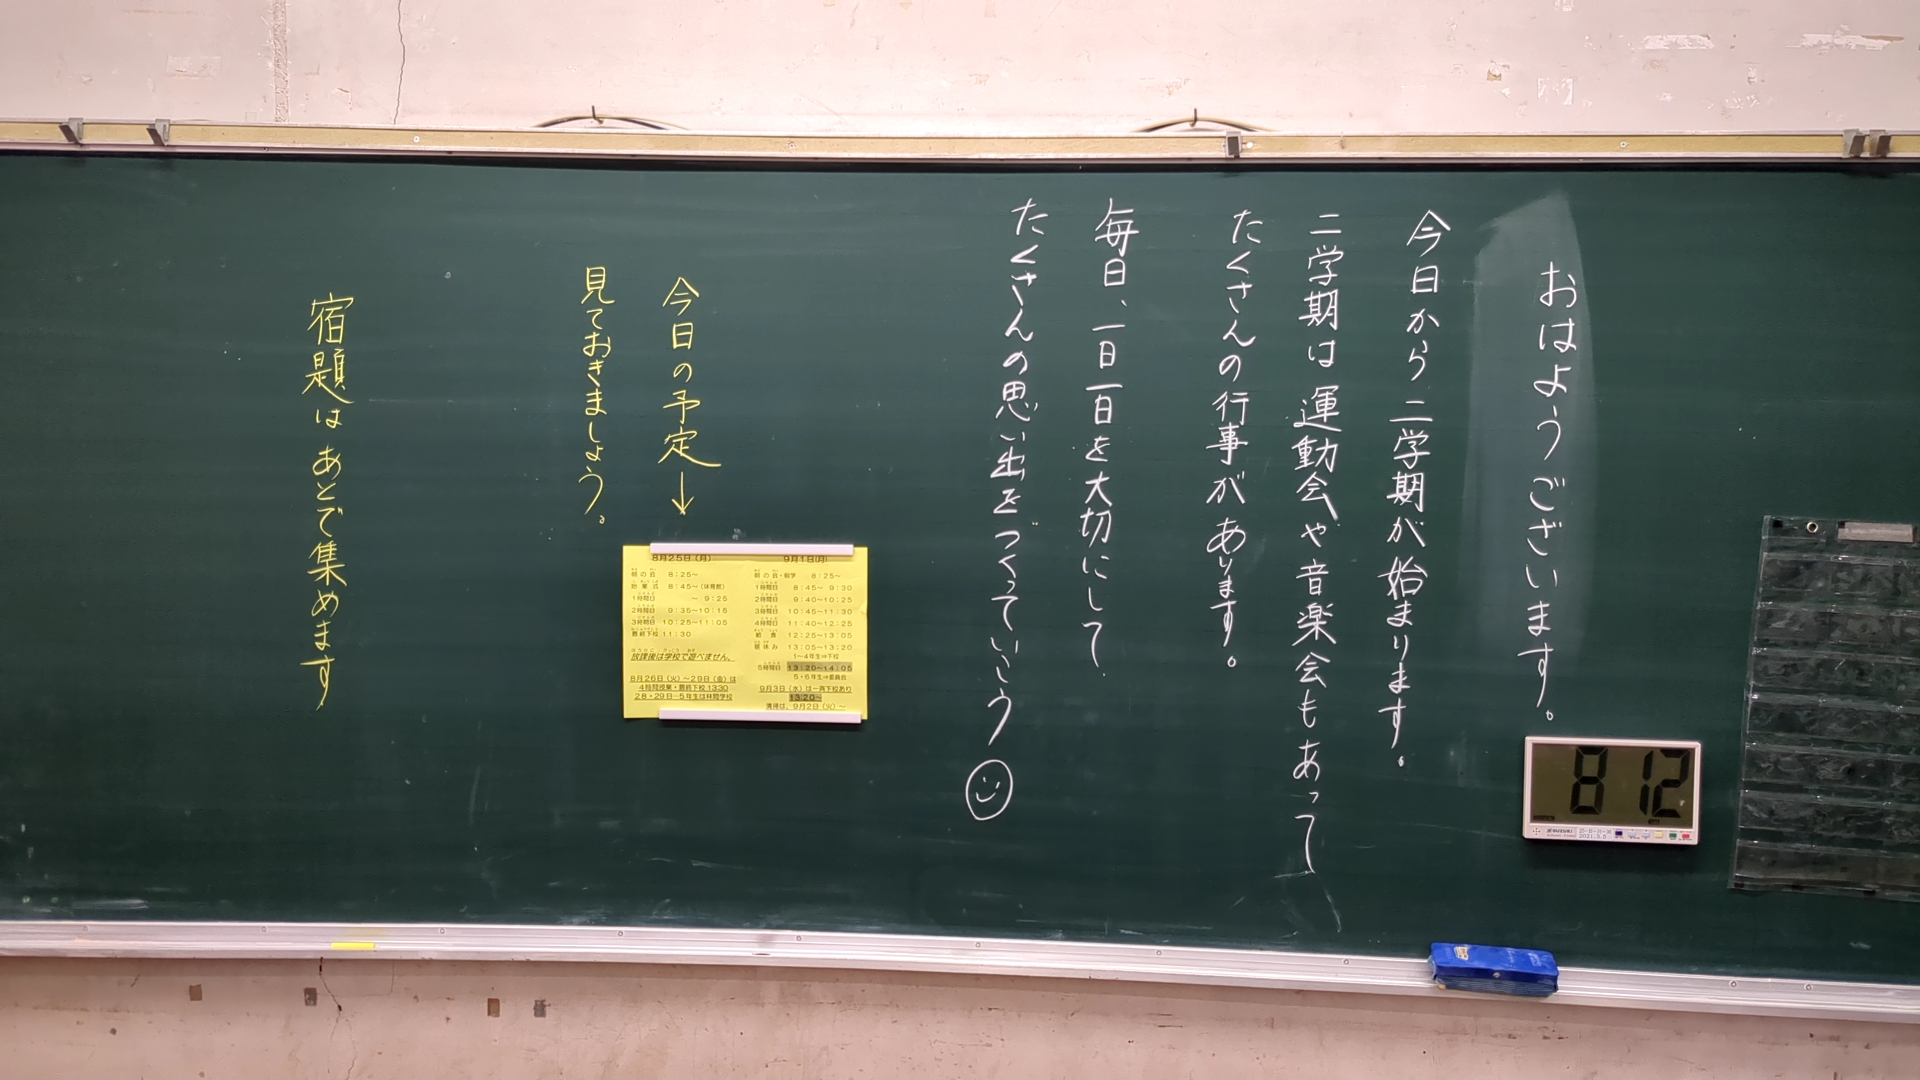 おはようございます。
今日から二学期が始まります。
二学期は運動会や音楽会もあって
たくさんの行事があります。
毎日、一日一日を大切にして、
たくさんの思い出をつくっていこう
今日の予定↓
見ておきましょう。
8月25日(月)
朝の会 8:25~
始業式 8:45~(体育館)
1時間目 ~9:25
2時間目 9:35~10:15
3時間目 10:25~11:05
最終下校 11:30
放課後は学校で遊べません。
8月26日(火)~29日(金)は
4時間授業・最終下校1330
28・29日…5年生は林間学校
9月1日(月)
朝の会・朝学 8:25~
1時間目 8:45~ 9:30
2時間目 9:40~10:25
3時間目 10:45~11:30
4時間目 11:40~12:25
給食 12:25~13:05
昼休み 13:05~13:20
1~4年生⇒下校
5時間目 13:20~14:05
5・6年生⇒委員会
9月3日(水)は一斉下校あり
13:20~
清掃は、9月2日(火)~
宿題はあとで集めます
8 12
SUZUKI
2021.3.5